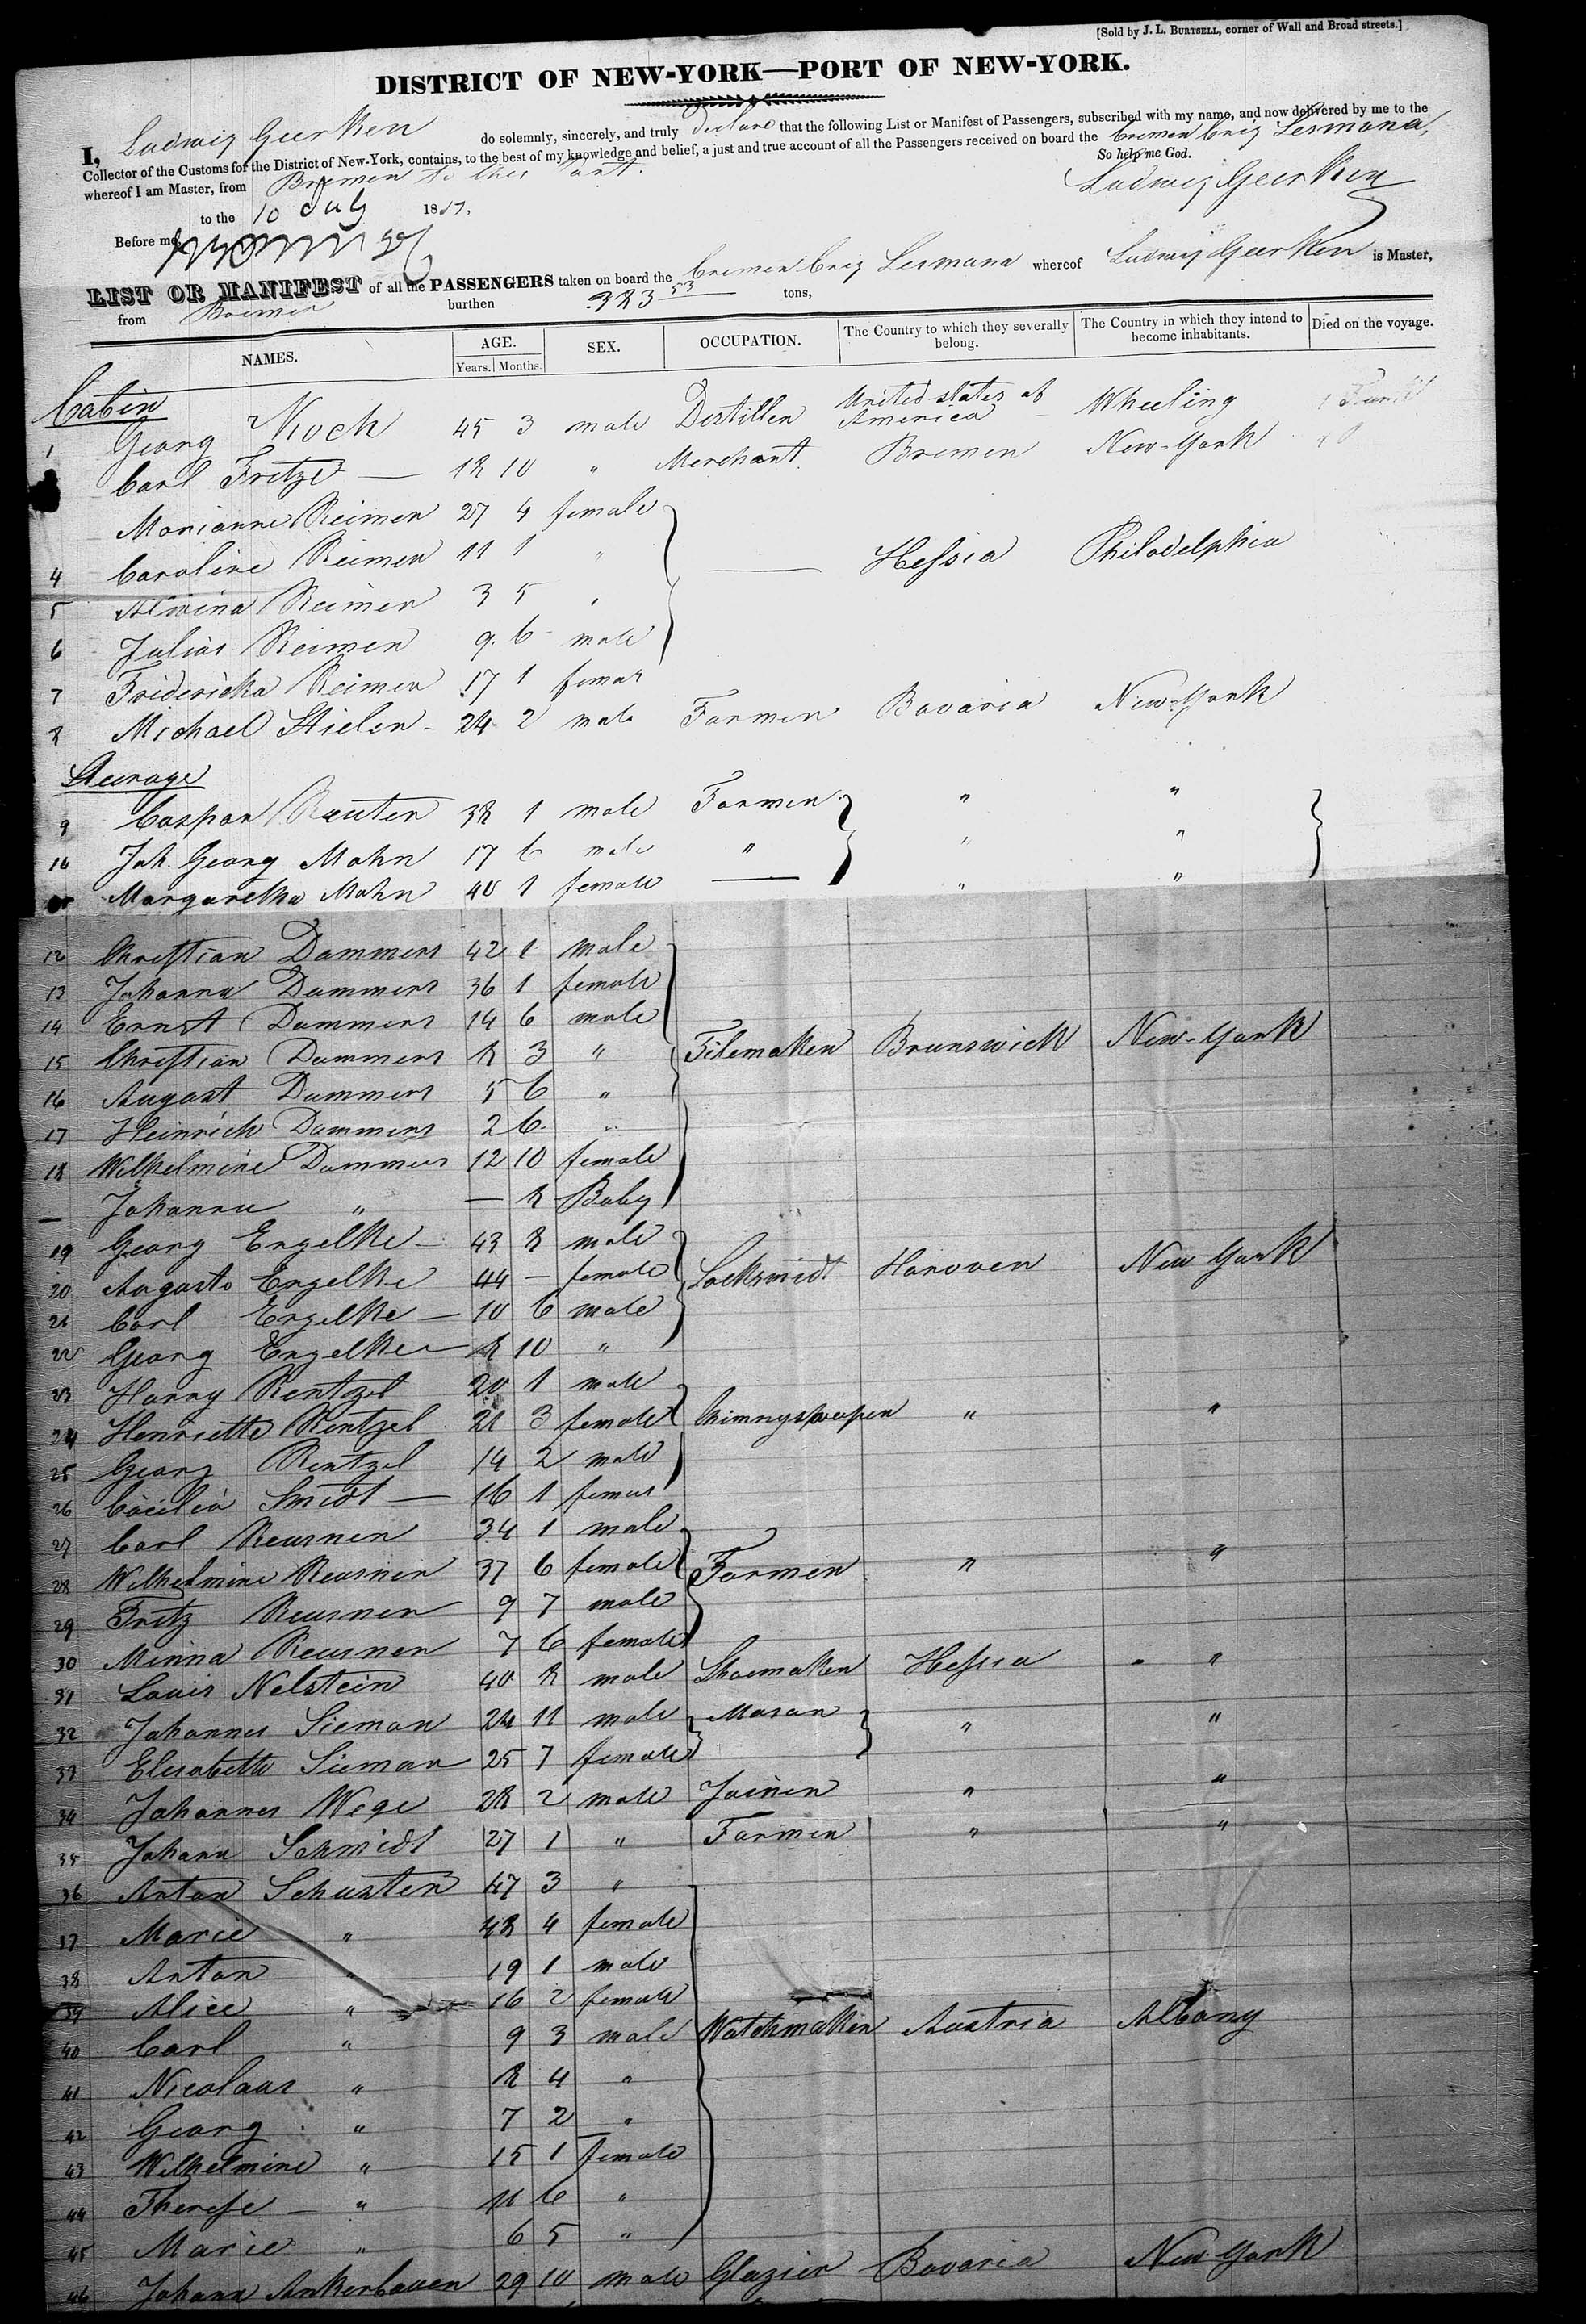 [Sold by J. L. BURTSELL, corner of Wall and Broad streets.]
DISTRICT OF NEW-YORK—PORT OF NEW-YORK.
I, Ludwig Geerken do solemnly, sincerely, and truly declare that the following List or Manifest of Passengers, subscribed with my name, and now delivered by me to the
Collector of the Customs for the District of New-York, contains, to the best of my knowledge and belief, a just and true account of all the Passengers received on board the bremen brig Lesmona,
whereof I am Master, from Bremen to this Port. So help me God.
to the 10 July 1851. Ludwig Geerken
Before me,
LIST OR MANIFEST of all the PASSENGERS taken on board the bremen brig Lesmona whereof Ludwig Geerken is Master,
from Bremen burthen 383 53 tons,
NAMES. AGE. Years. Months. SEX. OCCUPATION. The Country to which they severally belong. The Country in which they intend to become inhabitants. Died on the voyage.
Cabin
1 Georg Koch 45 3 male Destiller United states of America Wheeling
Carl Fritze — 18 10 " Merchant Bremen New-York
Marianne Reimer 27 4 female
4 Caroline Reimer 11 1 " — Hessia Philadelphia
5 Alwina Reimer 3 5 "
6 Julius Reimer 9 6 male
7 Fridericka Reimer 17 1 female
8 Michael Stieler - 24 2 male Farmer Bavaria New-York
Steerage
9 Caspar Reuter 38 1 male Farmer " "
10 Joh. Georg Mohn 17 6 male " " "
Margaretha Mohn 40 1 female — " "
12 Christian Dammers 42 1 male
13 Johanna Dammers 36 1 female
14 Ernst Dammers 14 6 male
15 Christian Dammers 8 3 " Filemaker Brunswick New-York
16 August Dammers 5 6 "
17 Heinrich Dammers 2 6 "
18 Wilhelmine Dammers 12 10 female
— Johanna " — 8 Baby
19 Georg Engelke — 43 8 male
20 Auguste Engelke 44 — female Locksmidt Hanover New York
21 Carl Engelke — 10 6 male
22 Georg Engelke — 8 10 "
23 Harry Rentzel 20 1 male
24 Henriette Rentzel 21 3 female Chimnysweeper " "
25 Georg Rentzel 14 2 male
26 Cäcilia Smidt — 16 1 female
27 Carl Reusner 34 1 male
28 Wilhelmine Reusner 37 6 female Farmer " "
29 Fritz Reusner 9 7 male
30 Minna Reusner 7 6 female
31 Louis Nelstein 40 8 male Shoemaker Hessia "
32 Johannes Siemon 24 11 male Mason " "
33 Elisabeth Siemon 25 7 female
34 Johannes Wege 28 2 male Joiner " "
35 Johann Schmidt 27 1 " Farmer " "
36 Anton Schuster 47 3 "
37 Marie " 48 4 female
38 Anton " 19 1 male
39 Alice " 16 2 female
40 Carl " 9 3 male Watchmaker Austria Albany
41 Nicolaus " 8 4 "
42 Georg " 7 2 "
43 Wilhelmine " 15 1 female
44 Therese — " 11 6 "
45 Marie " 6 5 "
46 Johann Ankerbauer 29 10 male Glazier Bavaria New York